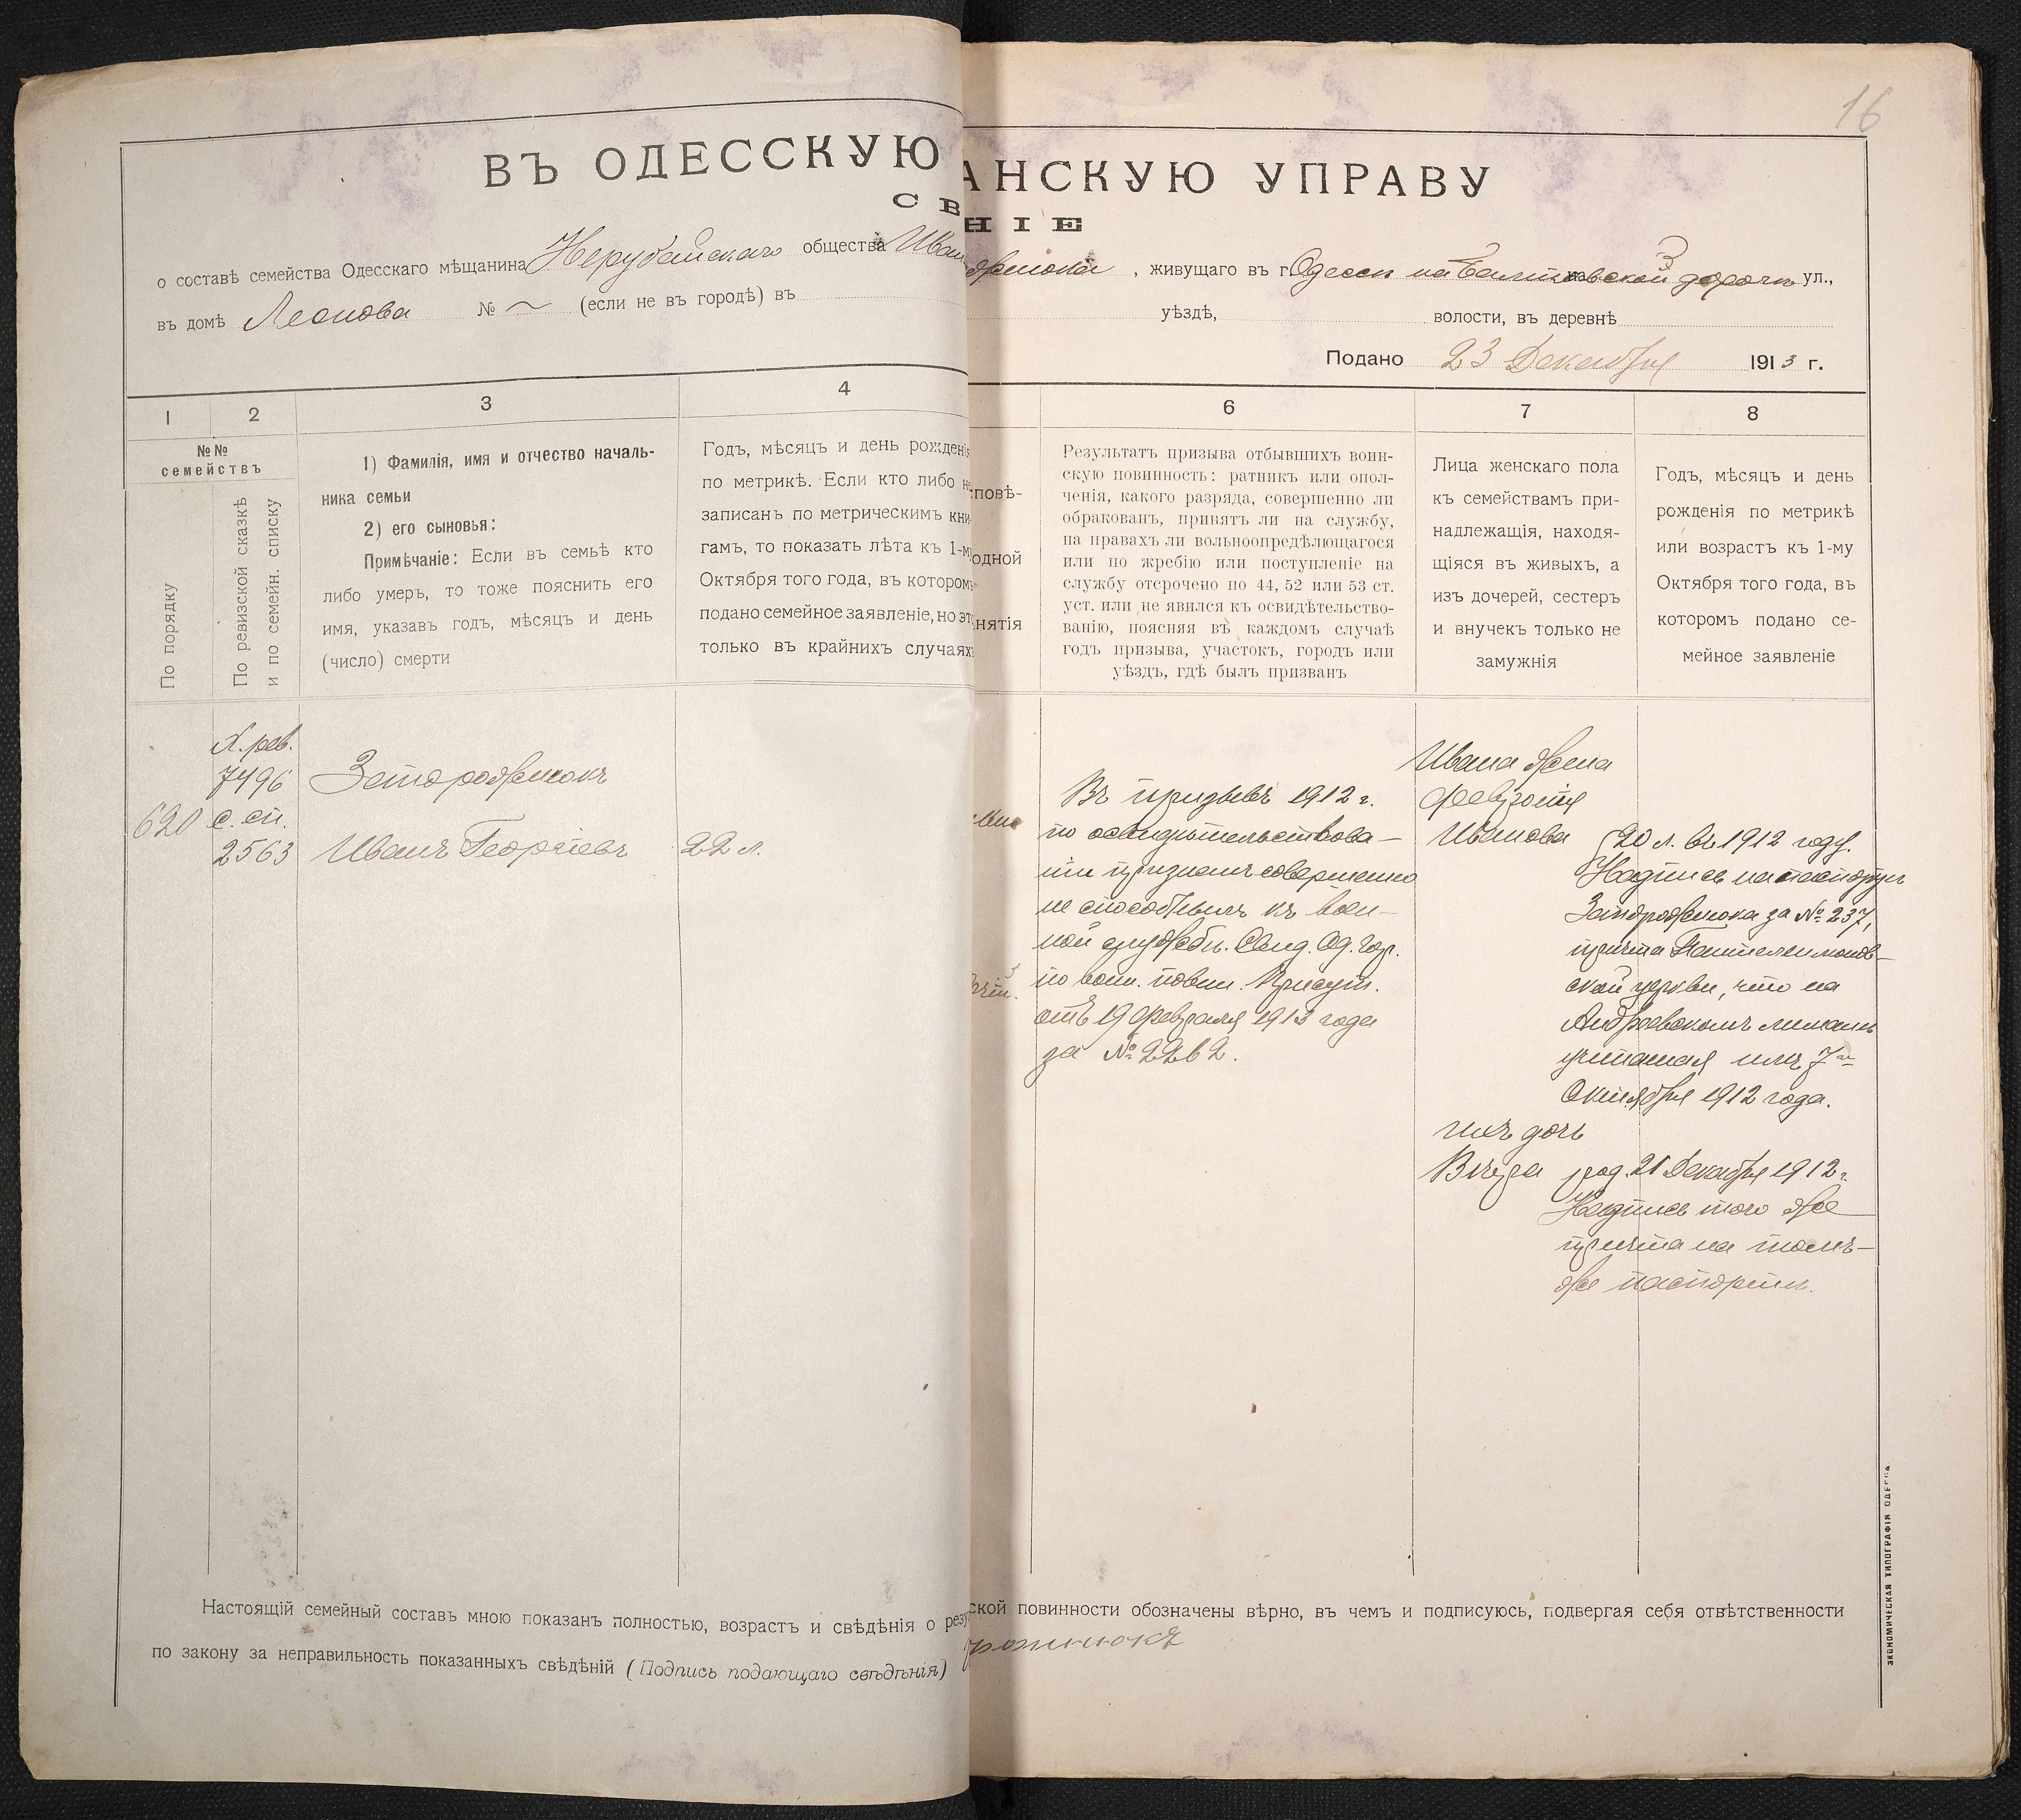 16
ВЪ ОДЕССКУЮ
АНСКУЮ УПРАВУ
СВ
НІЕ
о составѣ семейства Одесскаго мѣщанина Нерубайскаго общества Иван
, живущаго въ г. Одессѣ на Балтовской дорогѣ ул.,
въ домѣ Леонова № ~ (если не въ городѣ) въ
уѣздѣ, волости, въ деревнѣ
Подано 23 Декабря 1913 г.
1
2
3
4
6
7
8
№№
семействъ
По порядку
По ревизской сказкѣ
и по семейн. списку
1) Фамилія, имя и отчество началь-
ника семьи
2) его сыновья:
Примѣчаніе: Если въ семьѣ кто
либо умеръ, то тоже пояснить его
имя, указавъ годъ, мѣсяцъ и день
(число) смерти
Годъ, мѣсяцъ и день рожденія
по метрикѣ. Если кто либо не
записанъ по метрическимъ кни-
гамъ, то показать лѣта къ 1-му
Октября того года, въ которомъ
подано семейное заявленіе, но эт
только въ крайнихъ случаяхъ
сповѣ-
одной
нятія
Результатъ призыва отбывшихъ воин-
скую повинность: ратникъ или опол-
ченія, какого разряда, совершенно ли
обракованъ, принятъ ли на службу,
на правахъ ли вольноопредѣлющагося
или по жребію или поступленіе на
службу отсрочено по 44, 52 или 53 ст.
уст. или не явился къ освидѣтельство-
ванію, поясняя въ каждомъ случаѣ
годъ призыва, участокъ, городъ или
уѣздъ, гдѣ былъ призванъ
Лица женскаго пола
къ семействамъ при-
надлежащія, находя-
щіяся въ живыхъ, а
изъ дочерей, сестеръ
и внучекъ только не
замужнія
Годъ, мѣсяцъ и день
рожденія по метрикѣ
или возрастъ къ 1-му
Октября того года, въ
которомъ подано се-
мейное заявленіе
620
X. рев.
7496
с. сп.
2563
Запорожнюкъ
Иванъ Георгіевъ
22 л.
Въ призывѣ 1912 г.
по освидѣтельствова-
ніи признанъ совершенно
не способнымъ къ воен-
ной службѣ. Свид. Од. Гор.
по воин. повин. Присут.
отъ 19 Февраля 1913 года
за № 2262.
Ивана жена
Февронія
Иванова
20 л. въ 1912 году.
Надпись на паспортѣ
Запорожнюка за № 237,
причта Пантелеимонов-
ской церкви, что на
Андреевскомъ лиманѣ
7го
Октября 1912 года.
ихъ дочь
Вѣра
род. 21 Декабря 1912 г.
Надпись того же
причта на томъ-
же паспортѣ.
Настоящій семейный составъ мною показанъ полностью, возрастъ и свѣдѣнія о резу
ской повинности обозначены вѣрно, въ чемъ и подписуюсь, подвергая себя отвѣтственности
по закону за неправильность показанныхъ свѣдѣній (Подпись подающаго свѣдѣнія)
рожнюкъ
ЭКОНОМИЧЕСКАЯ ТИПОГРАФІЯ ОДЕССА